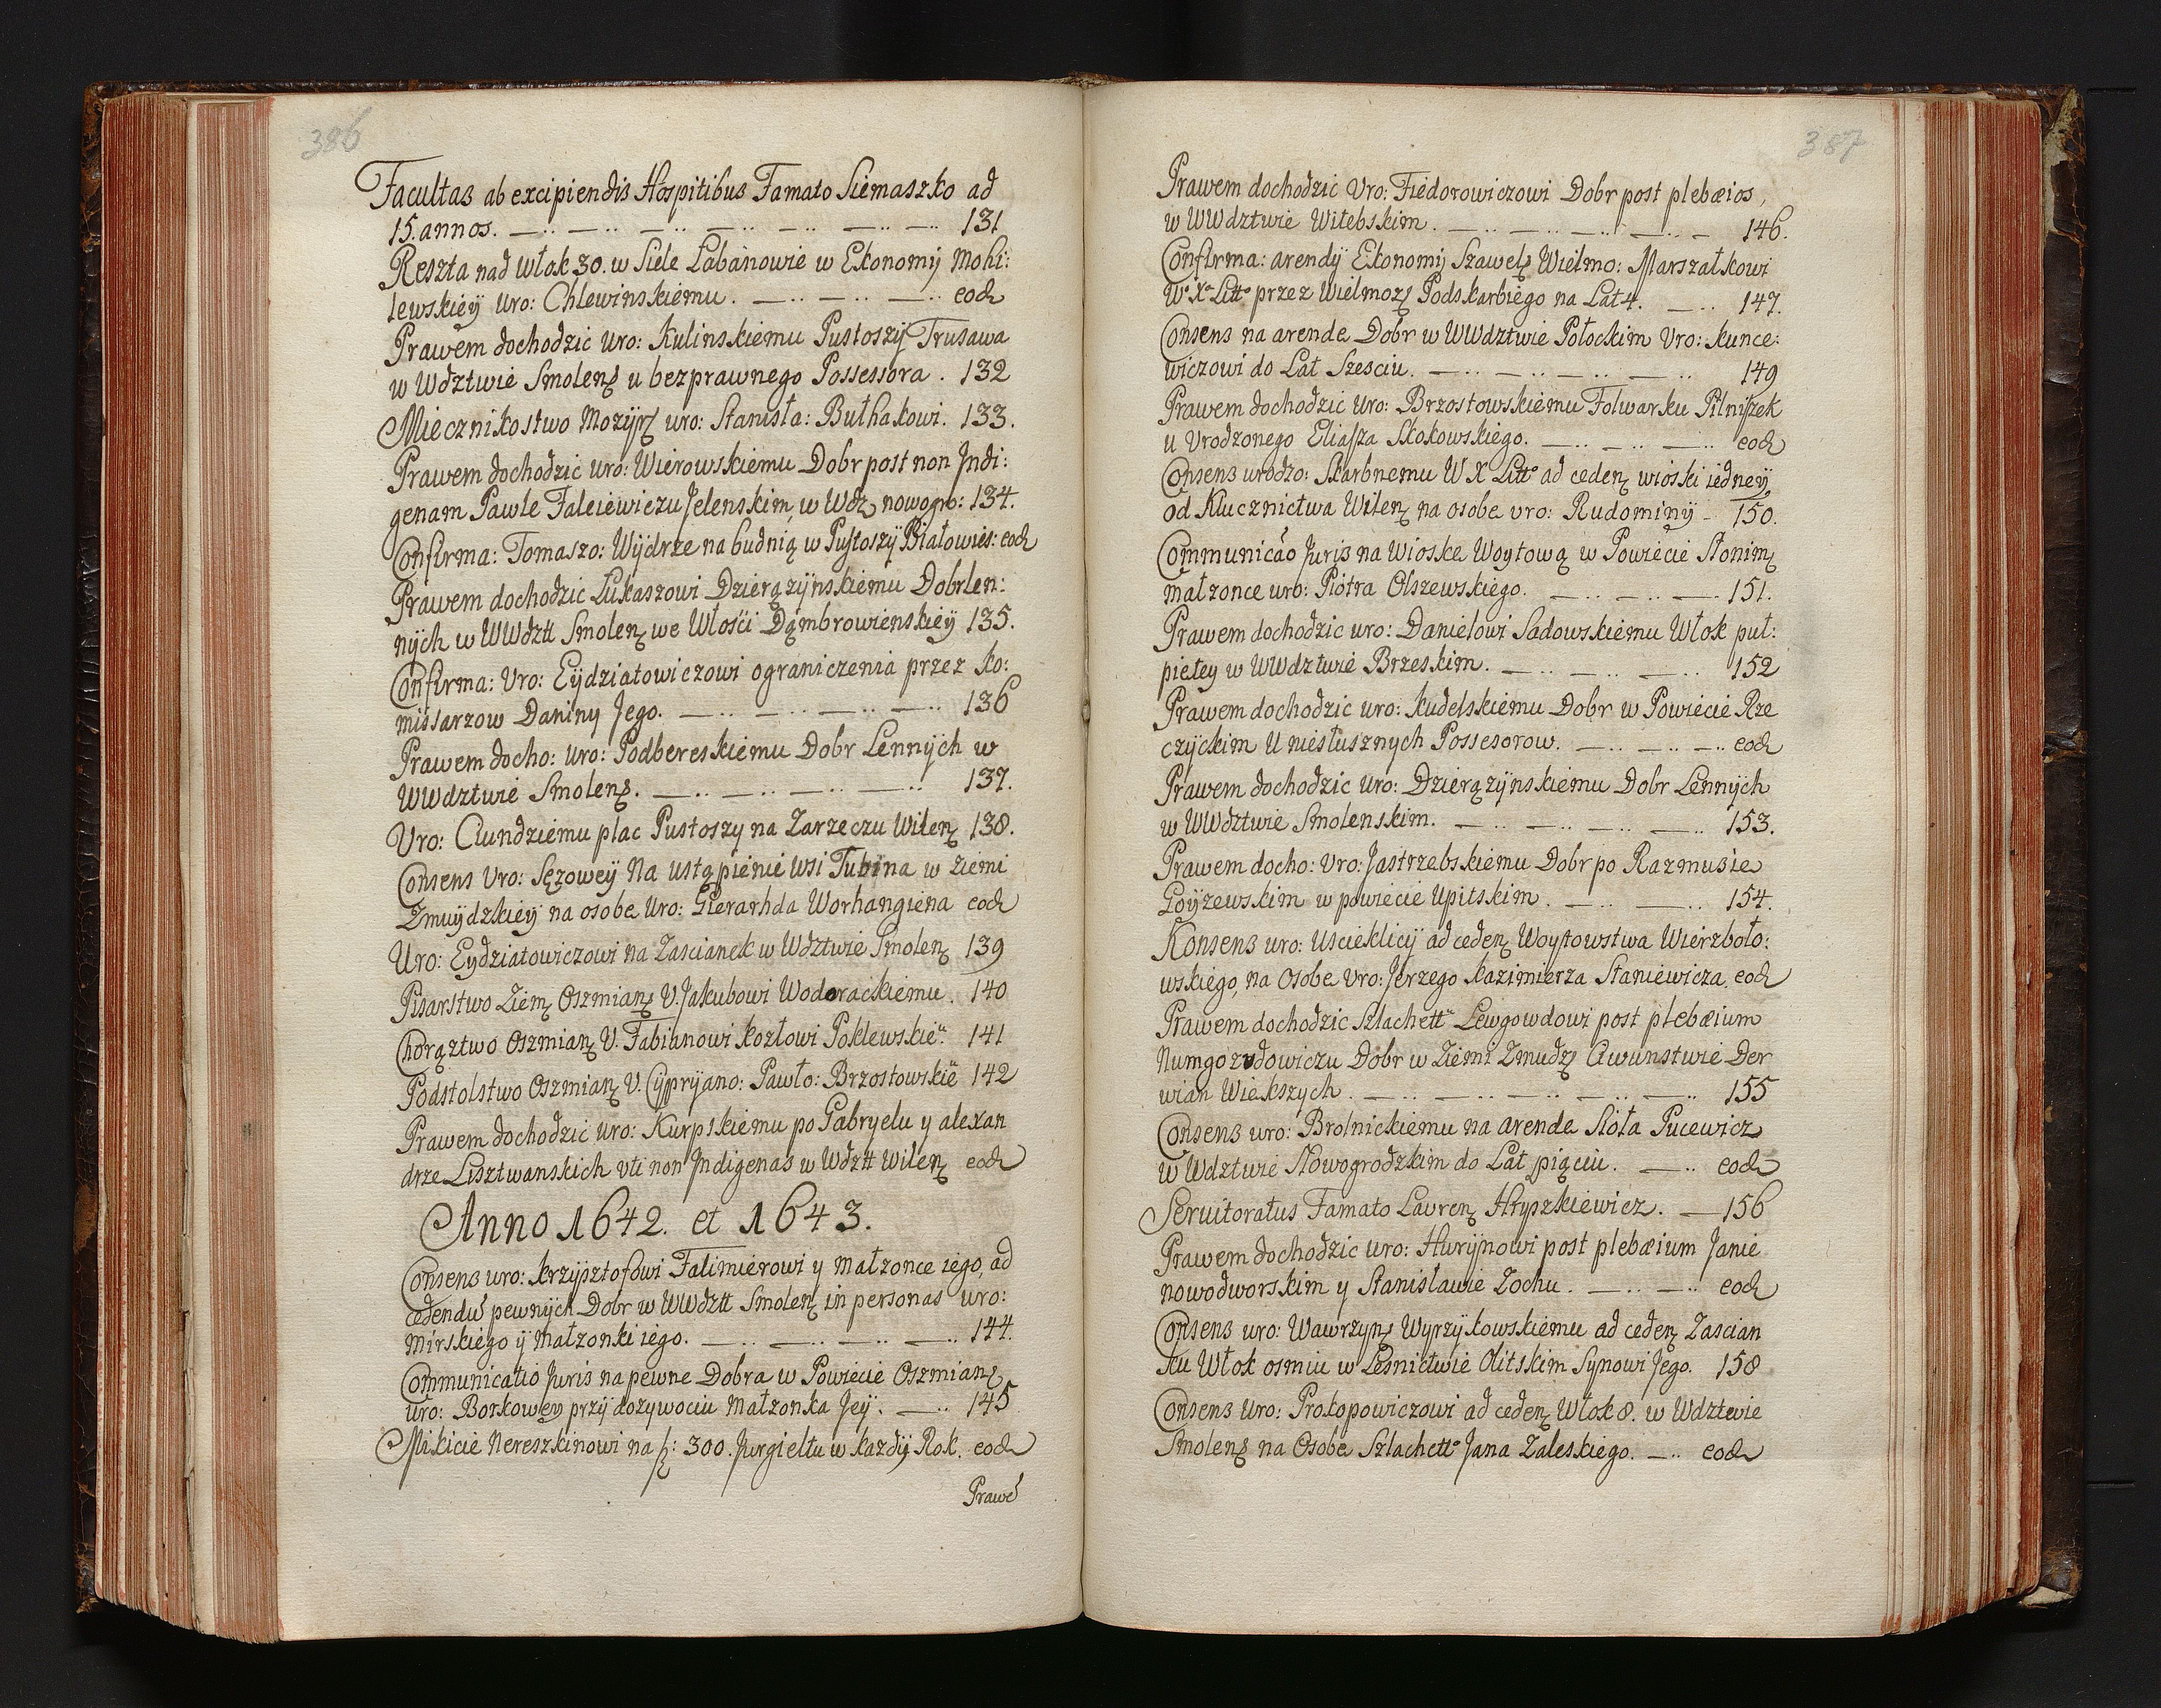 386
Facultas ab excipiendis Hospitibus Famato Siemaszko ad
15. annos. 131
Reszta nad włok 30. w Siele Łabanowie w Ekonomij Mohi:
lewskieÿ Uro: Chlewinskiemu. eod
Prawem dochodzic Uro: Kulinskiemu Pustoszÿ Trusawa
w Wdztwie Smolen u bezprawnego Possessora. 132
Miecznikostwo Mozyr uro: Stanisła: Bułhakowi. 133.
Prawem dochodzic uro: Wierowskiemu Dobr post non Jndi:
genam Pawle Faleiewiczu Jelenskim, w Wdz nowogro: 134.
Confirma: Tomaszo: Wÿdrze na budnią w Pustoszÿ Białowies: eod
Prawem dochodzic Łukaszowi Dzierązÿnskiemu Dobr len:
nÿch w WWdztt Smolen we Włości Dąmbrowienskieÿ 135.
Confirma: Uro: Eÿdziatowiczowi ograniczenia przez ko:
missarzow Daniny Jego. 136
Prawem docho: uro: Podbereskiemu Dobr Lennÿch w
WWdztwie Smolens. 137.
Uro: Aundziemu plac Pustoszy na Zarzeczu Wilen 138.
Consens Uro: Sęzoweÿ Na ustąpienie wsi Tubina w ziemi
Zmuÿdzkieÿ na osobe Uro: Gierarhda Worhangiena eod
Uro: Eydziatowiczowi na Zascianek w Wdztwie Smolen 139
Pisarstwo Ziem Oszmian U. Jakubowi Wodorackiemu. 140
Chorąztwo Oszmian U. Fabianowi Kozłowi Poklewskieu. 141
Podstolstwo Oszmian U. Cÿprÿano: Pawło: Brzostowskieu 142
Prawem dochodzic Uro: Kurpskiemu po Gabryelu y alexan
drze Lisztwanskich uti non Jndigenas w Wdztt Wilen eod
Anno 1642. et 1643.
Consens uro: krzÿsztofowi Falimierowi y małzonce iego, ad
cedendū pewnÿch Dobr w WWdztt Smolen in personas uro:
Mirskiego ÿ Małzonki iego. 144.
Communicatio Juris na pewne Dobra w Powiecie Oszmian
uro: Borkoweÿ przÿ dozywociu Małzonka Jeÿ. 145
Mikicie Nereszkinowi na f: 300. Jurgieltu w kazdÿ Rok. eod
Prawē
387
Prawem dochodzic Uro: Fiedorowiczowi Dobr post plebæios,
w WWdztwie Witebskim. 146.
Confirma: arendÿ Ekonomij Szawel Wielmo: Marszałkowi
Wo Xa Litto przez Wielmoz Podskarbiego na Lat 4. 147.
Consens na arende Dobr w WWdztwie Połockim Uro: kunce:
wiczowi do Lat Szesciu. 149
Prawem dochodzic Uro: Brzostowskiemu Folwarku Pilniszek
u Urodzonego Eliasza Skokowskiego. eod
Consens urodzo: Skarbnemu W X Litto ad ceden wioski iedneÿ
od Klucznictwa Wilen na osobe uro: Rudominÿ 150.
Communicāo Juris na Wioske Woytową w Powiecie Słonim
małzonce uro: Piotra Olszewskiego. 151.
Prawem dochodzic uro: Daniełowi Sadowskiemu Włok puł:
piełey w WWdztwie Brzeskim. 152
Prawem dochodzic uro: kudelskiemu Dobr w Powiecie Rze
czÿckim U niesłusznych Possesorow. eod
Prawem dochodzic Uro: Dzierązÿnskiemu Dobr Lennÿch
w WWdztwie Smolenskim. 153.
Prawem docho: Uro: Jastrzebskiemu Dobr po Razmusie
Goÿzewskim w powiecie Upitskim. 154.
Konsens uro: Uscieklicÿ ad ceden Woytowstwa Wierzboło:
wskiego, na Osobe uro: Jerzego Kazimierza Staniewicza. eod
Prawem dochodzic Szlachettu Lewgowdowi post plebæium
Numgozudowiczu Dobr w Ziemi Zmudz Ciwunstwie Der
wian Wiekszych. 155
Consens uro: Brolnickiemu na arende Sioła Pucewicz
w Wdztwie Nowogrodzkim do Lat piąciu. eod
Seruitoratus Famato Lauren Hryszkiewicz. 156
Prawem dochodzic uro: Hurÿnowi post plebæium Janie
nowodworskim y Stanisławie Zochu. eod
Consens uro: Wawrzyn Wyrzykowskiemu ad ceden Zascian
ku Włok osmiu w Lesnictwie Olitskim Synowi Jego. 158
Consens Uro: Prokopowiczowi ad ceden Włok 8. w Wdztwie
Smolens na Osobe Szlachetto Jana Zaleskiego. eod